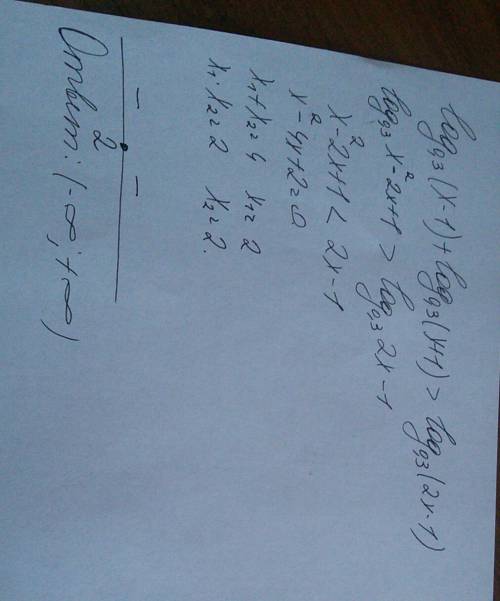 log₀,₃(x-1)+log₀,₃(x+1) > log₀,₃(2x-1)
log₀,₃ x²-2x+1 > log₀,₃ 2x-1
x²-2x+1 < 2x-1
x²-4x+2=0
x₁+x₂=4 x₁=2
x₁·x₂=2 x₂=2.
- -
2
Ответ: (-∞; +∞)